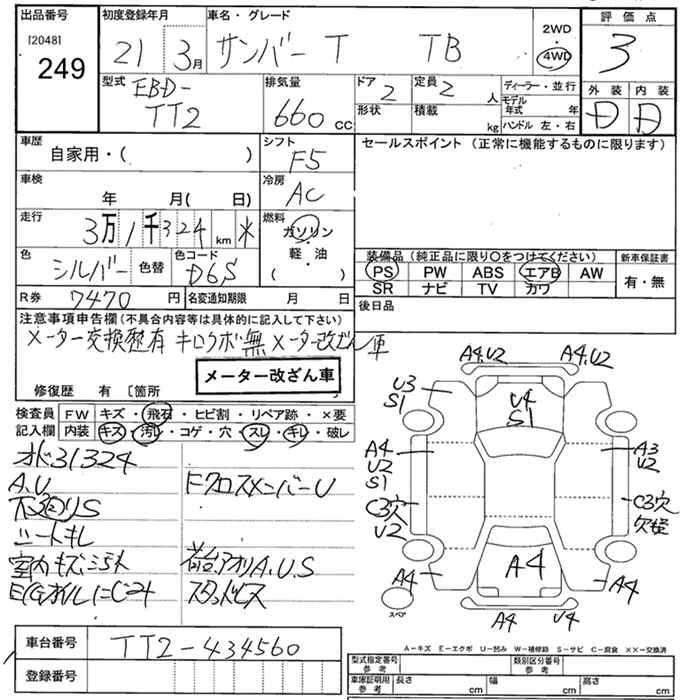 出品番号 初度登録年月 車名・グレード 2WD 評価点
[2048]
249 21 3月 サンバー T TB 4WD 3
型式 排気量 ドア 定員 ディーラー・並行 外装 内装
EBD- TT2 660 cc 2 2人 モデル年式 年 D D
形状 積載 kg ハンドル 左・右
車歴 シフト セールスポイント(正常に機能するものに限ります)
自家用・( ) F5
車検 年 月( 日) 冷房 AC
走行 燃料
3万1千324 km * ガソリン・軽油・( )
色 シルバー 色替 色コード D6S 装備品(純正品に限り○をつけてください) 新車保証書
PS PW ABS エアB AW 有・無
SR ナビ TV カワ
R券 7470 円 名変通知期限 月 日 後日品
注意事項申告欄(不具合内容等は具体的に記入して下さい)
メーター交換歴有 キロクボ無 メーター改ざん車
メーター改ざん車
修復歴 有 〔箇所
検査員 FW キズ・飛石・ヒビ割・リペア跡・×要
記入欄 内装 キズ・汚レ・コゲ・穴・スレ・キレ・破レ
オド31324
A.U FクロスメンバーU
下廻りS
シートキレ
室内キズ 荷台、アオリA.U.S
E/Gオイルにじみ スタッドレス
A4.U2 A4.U2
U3 S1 U4 S1
A4 U2 S1 A3 U2
C3穴 U2 C3穴
A4 A4 A4
A4 U4
スペア
車台番号 TT2-434560
登録番号
A-キズ E-エクボ U-凹み W-補修跡 S-サビ C-腐食 ××-交換済
型式指定番号 参考 類別区分番号 参考
車庫証明用 参考 長さ cm 幅 cm 高さ cm